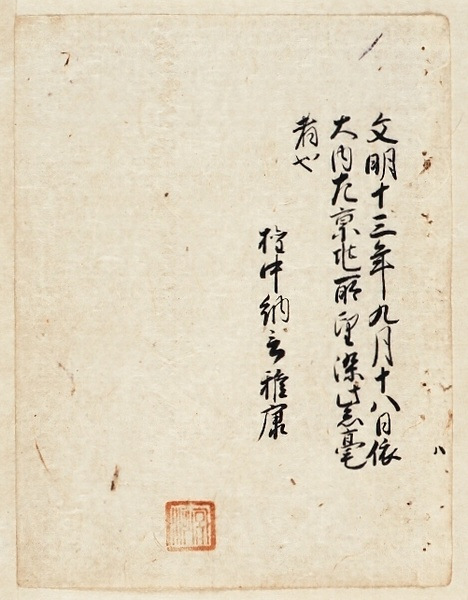 文明十三年九月十八日依
大内左京兆所望染紫毫
者也
権中納言雅康
宮河